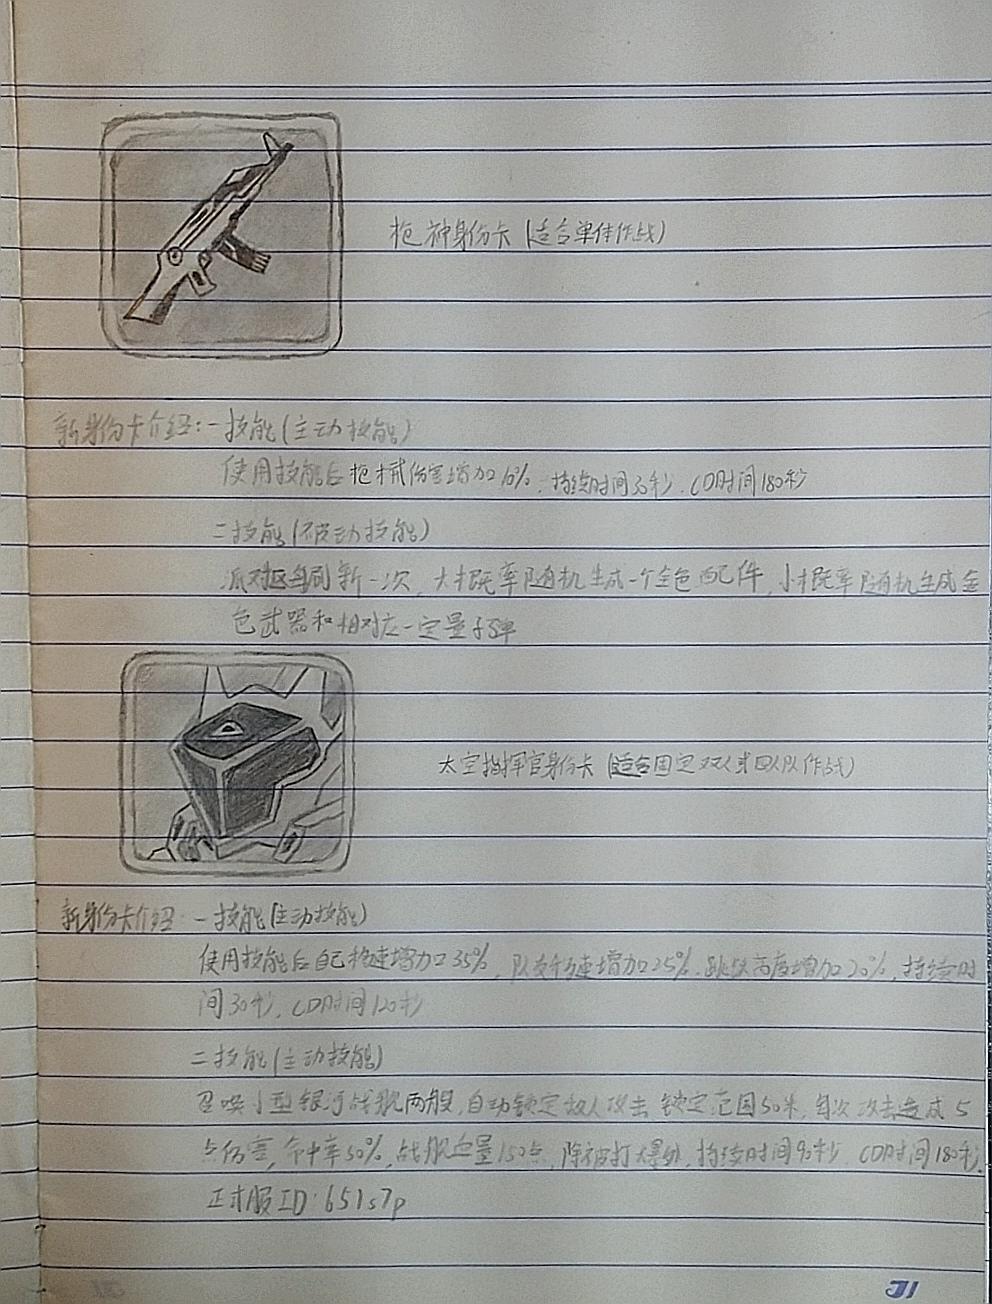 枪神身份卡(适合单体作战)
新身份卡介绍:一技能(主动技能)
使用技能后枪械伤害增加10%,持续时间30秒,CD时间180秒
二技能(被动技能)
派对区每刷新一次,大概率随机生成一个金色配件,小概率随机生成金
色武器和相对应一定量子弹
太空指挥官身份卡(适合固定双人或四人队作战)
新身份卡介绍:一技能(主动技能)
使用技能后自己移速增加35%,队友移速增加25%,跳跃高度增加20%,持续时
间30秒,CD时间120秒
二技能(主动技能)
召唤小型银河战舰两艘,自动锁定敌人攻击 锁定范围50米,每次攻击造成5
点伤害,命中率50%,战舰血量150点,除被打爆外,持续时间90秒 CD时间180秒.
正式服ID:651s7p